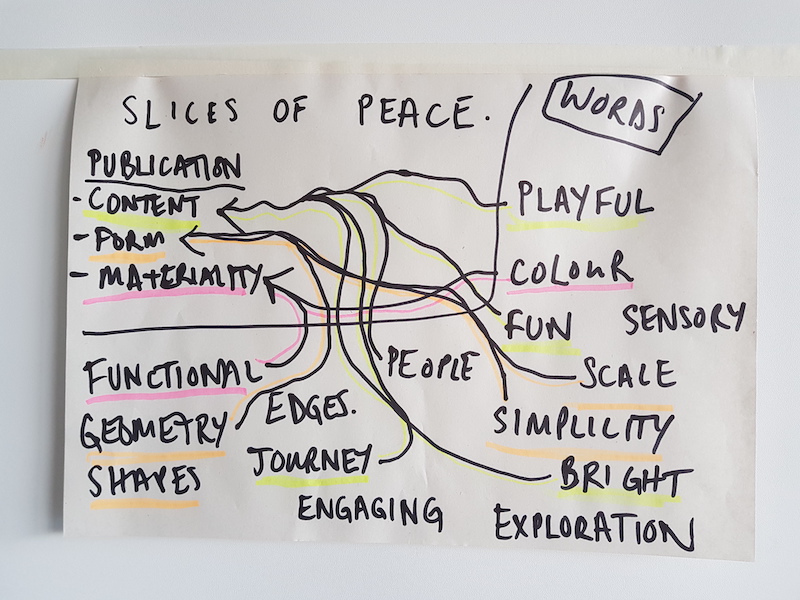 SLICES OF PEACE.
WORDS
PUBLICATION
- CONTENT
- FORM
- MATERIALITY
PLAYFUL
COLOUR
FUN
SENSORY
PEOPLE
SCALE
FUNCTIONAL
EDGES.
GEOMETRY
SIMPLICITY
JOURNEY
SHAPES
BRIGHT
ENGAGING
EXPLORATION